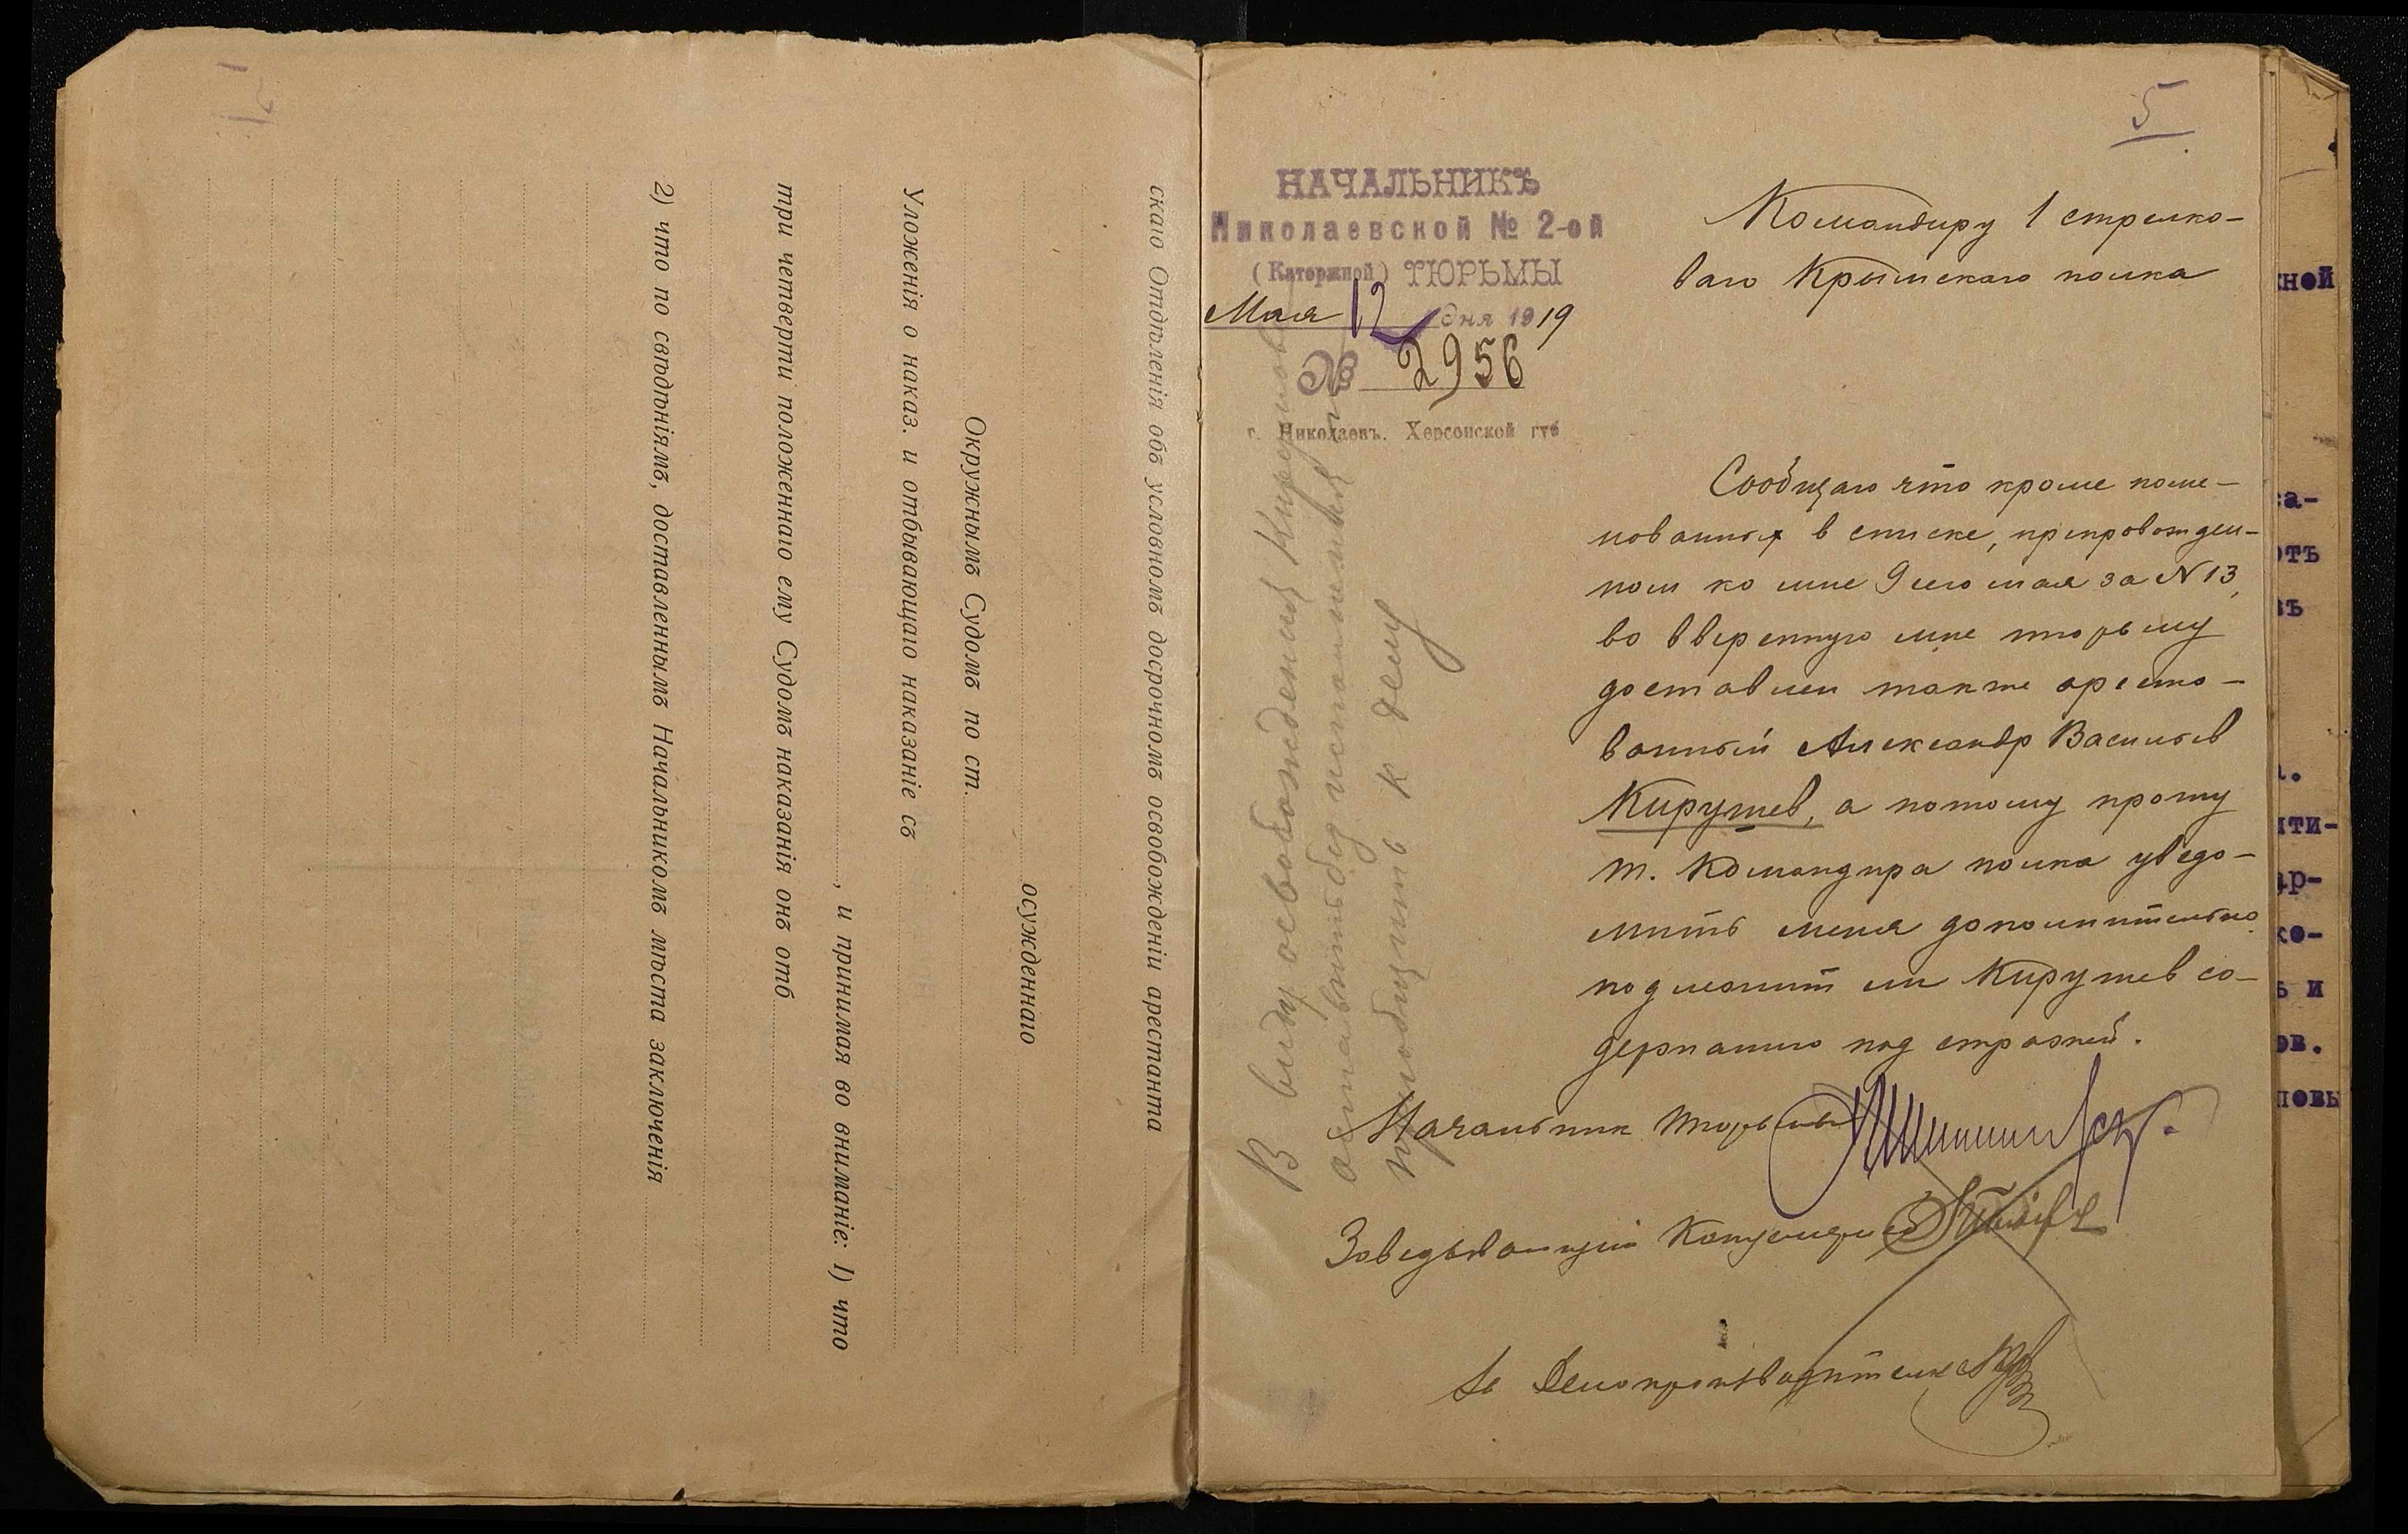 скаго Отдѣленія объ условномъ досрочномъ освобожденіи арестанта
осужденнаго
Окружнымъ Судомъ по ст.
Уложенія о наказ. и отбывающаго наказаніе съ
, и принимая во вниманіе: 1) что
три четверти положеннаго ему Судомъ наказанія онъ отб
2) что по свѣдѣніямъ, доставленнымъ Начальникомъ мѣста заключенія
5
НАЧАЛЬНИКЪ
Николаевской № 2-ой
(Каторжной) ТЮРЬМЫ
Мая 12 дня 1919
№ 2956
г. Николаевъ. Херсонской губ
Командиру 1 стрелко-
ваго Крымскаго полка
Сообщаю что кроме поиме-
нованных в списке, препровожден-
ном ко мне 9 сего мая за N 13,
во вверенную мне тюрьму
доставлен также аресто-
ванный Александр Васильев
Кирушев, а потому прошу
т. Командира полка уведо-
мить меня дополнительно
подлежит ли Кирушев со-
держанию под стражей.
Начальник тюрьмы
Заведывающий Канцелярией
Делопроизводителя
В виду освобождения Кирушева
оставить без исполнения
приобщить к делу
жной
са-
отъ
въ
а.
ити-
ар-
ко-
ъ и
ов.
повы